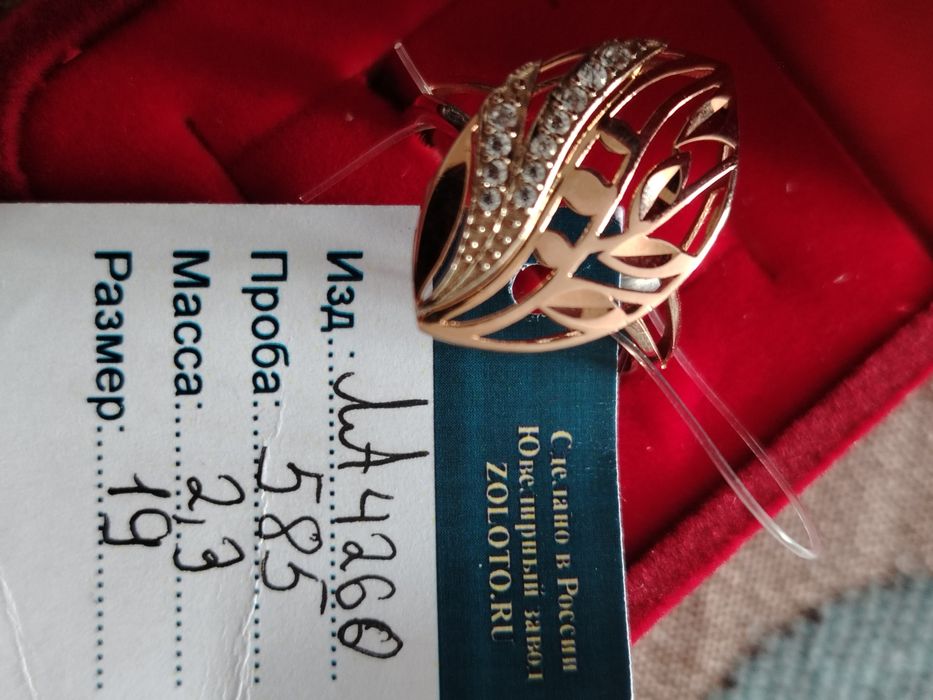 Сделано в России
Ювелирный завод
ZOLOTO.RU
Изд.: ЛА 4260
Проба: 585
Масса: 2,3
Размер: 19